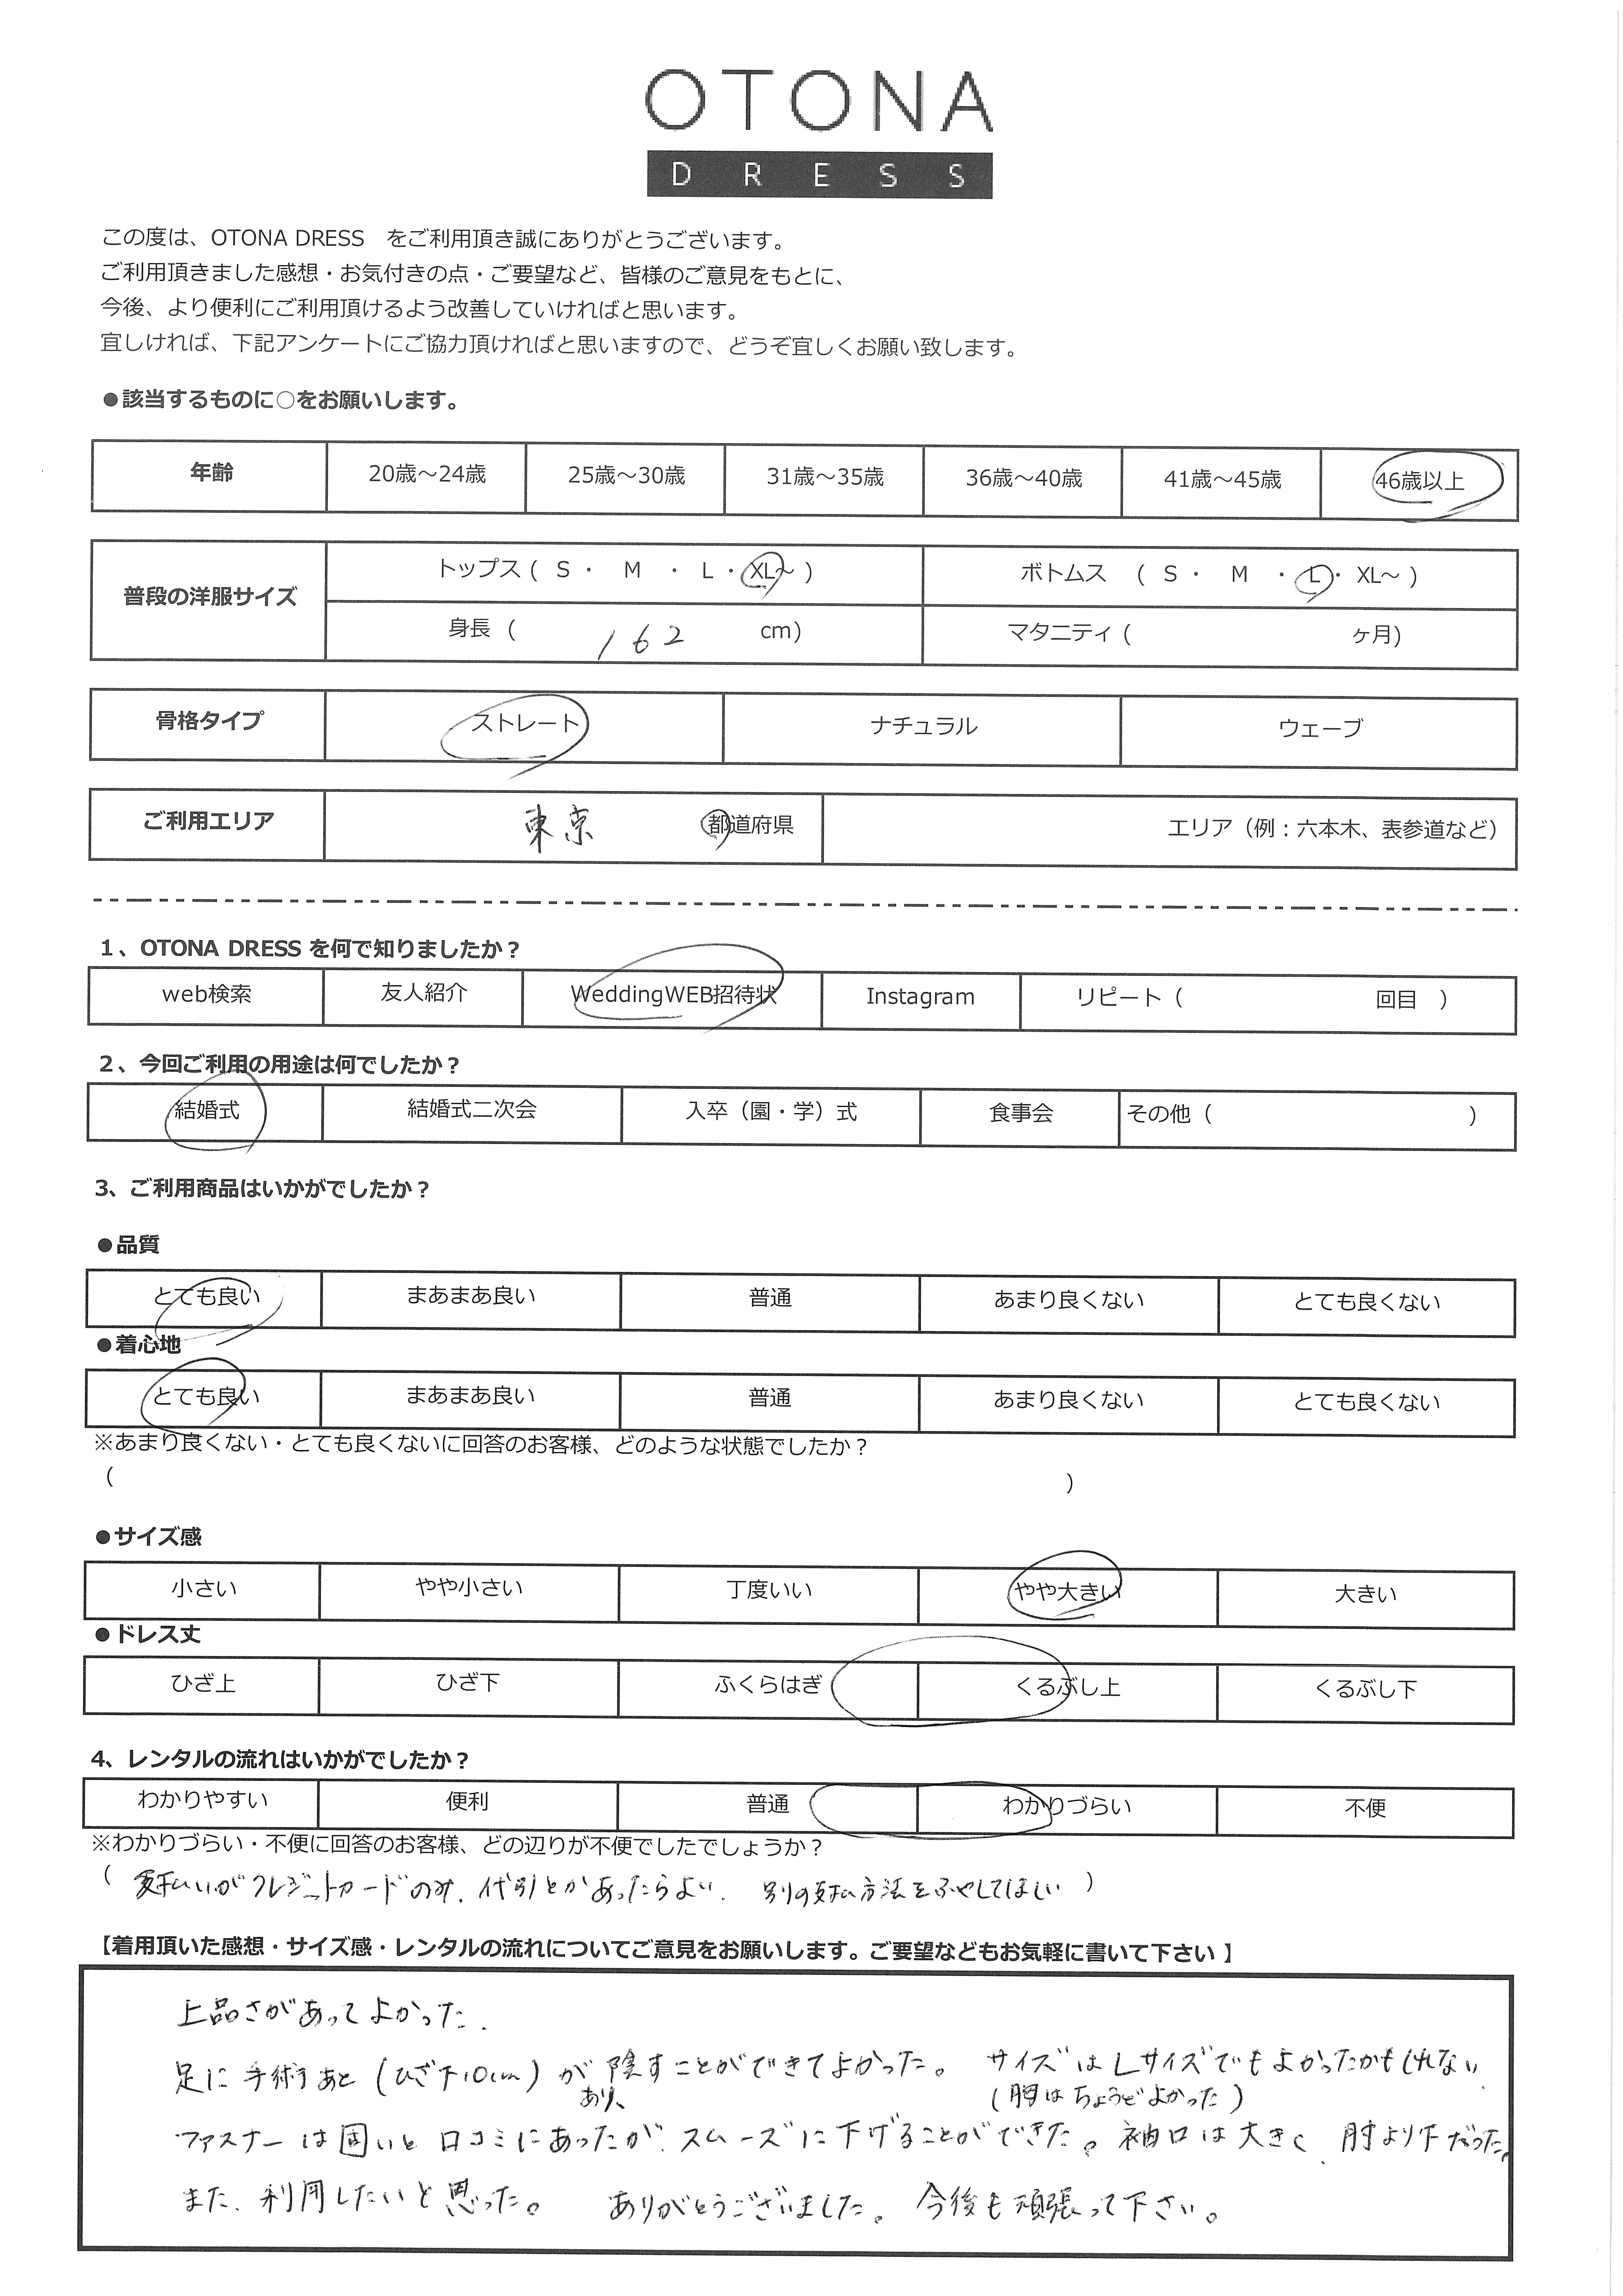 OTONA
DRESS
この度は、OTONA DRESS をご利用頂き誠にありがとうございます。
ご利用頂きました感想・お気付きの点・ご要望など、皆様のご意見をもとに、
今後、より便利にご利用頂けるよう改善していければと思います。
宜しければ、下記アンケートにご協力頂ければと思いますので、どうぞ宜しくお願い致します。
●該当するものに○をお願いします。
年齢 20歳～24歳 25歳～30歳 31歳～35歳 36歳～40歳 41歳～45歳 46歳以上
普段の洋服サイズ
トップス ( S ・ M ・ L ・ XL～ ) ボトムス ( S ・ M ・ L ・ XL～ )
身長 ( 162 cm) マタニティ ( ヶ月)
骨格タイプ ストレート ナチュラル ウェーブ
ご利用エリア 東京 都道府県 エリア（例：六本木、表参道など）
1、OTONA DRESS を何で知りましたか？
web検索 友人紹介 WeddingWEB招待状 Instagram リピート（ 回目 ）
2、今回ご利用の用途は何でしたか？
結婚式 結婚式二次会 入卒（園・学）式 食事会 その他（ ）
3、ご利用商品はいかがでしたか？
●品質
とても良い まあまあ良い 普通 あまり良くない とても良くない
●着心地
とても良い まあまあ良い 普通 あまり良くない とても良くない
※あまり良くない・とても良くないに回答のお客様、どのような状態でしたか？
（ ）
●サイズ感
小さい やや小さい 丁度いい やや大きい 大きい
●ドレス丈
ひざ上 ひざ下 ふくらはぎ くるぶし上 くるぶし下
4、レンタルの流れはいかがでしたか？
わかりやすい 便利 普通 わかりづらい 不便
※わかりづらい・不便に回答のお客様、どの辺りが不便でしたでしょうか？
（ 支払いがクレジットカードのみ、代引とかあったらよい、別の支払方法をふやしてほしい ）
【着用頂いた感想・サイズ感・レンタルの流れについてご意見をお願いします。ご要望などもお気軽に書いて下さい 】
上品さがあってよかった。
足に手術あと（ひざ下10cm）が 隠すことができてよかった。 サイズはLサイズでもよかったかもしれない
あり、 （胸はちょうどよかった）
ファスナーは固いと口コミにあったが、スムーズに下げることができた。袖口は大きく、肘より下だった。
また、利用したいと思った。 ありがとうございました。今後も頑張って下さい。